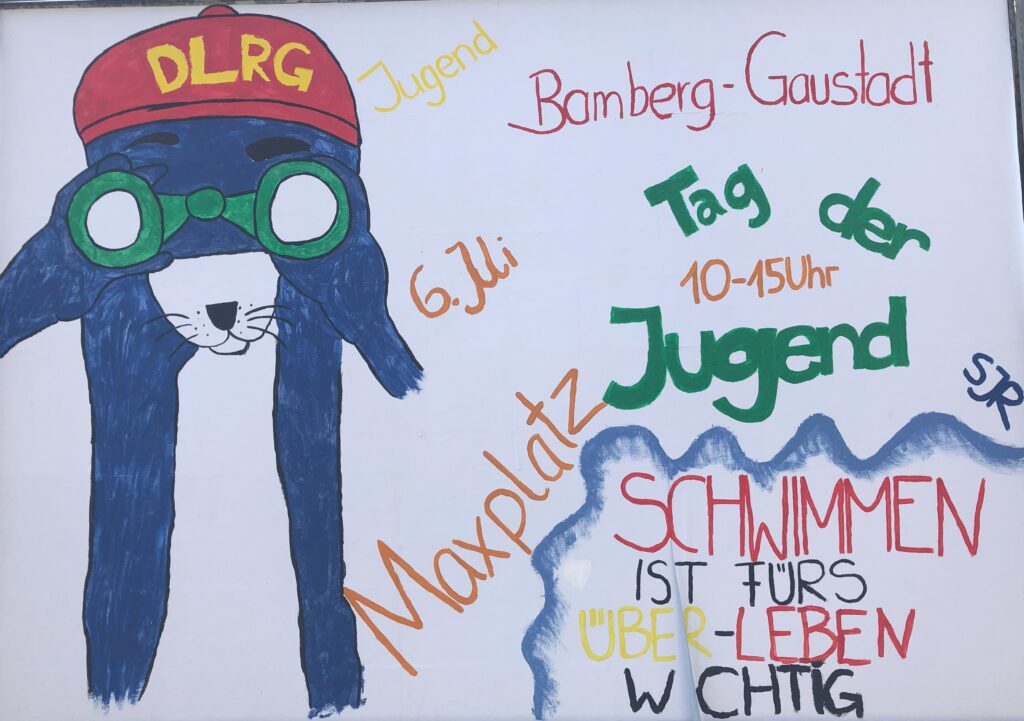 DLRG
Jugend
Bamberg-Gaustadt
Tag der
10-15Uhr
Jugend
6. Juli
Maxplatz
SJR
SCHWIMMEN
IST FÜRS
ÜBER-LEBEN
WICHTIG